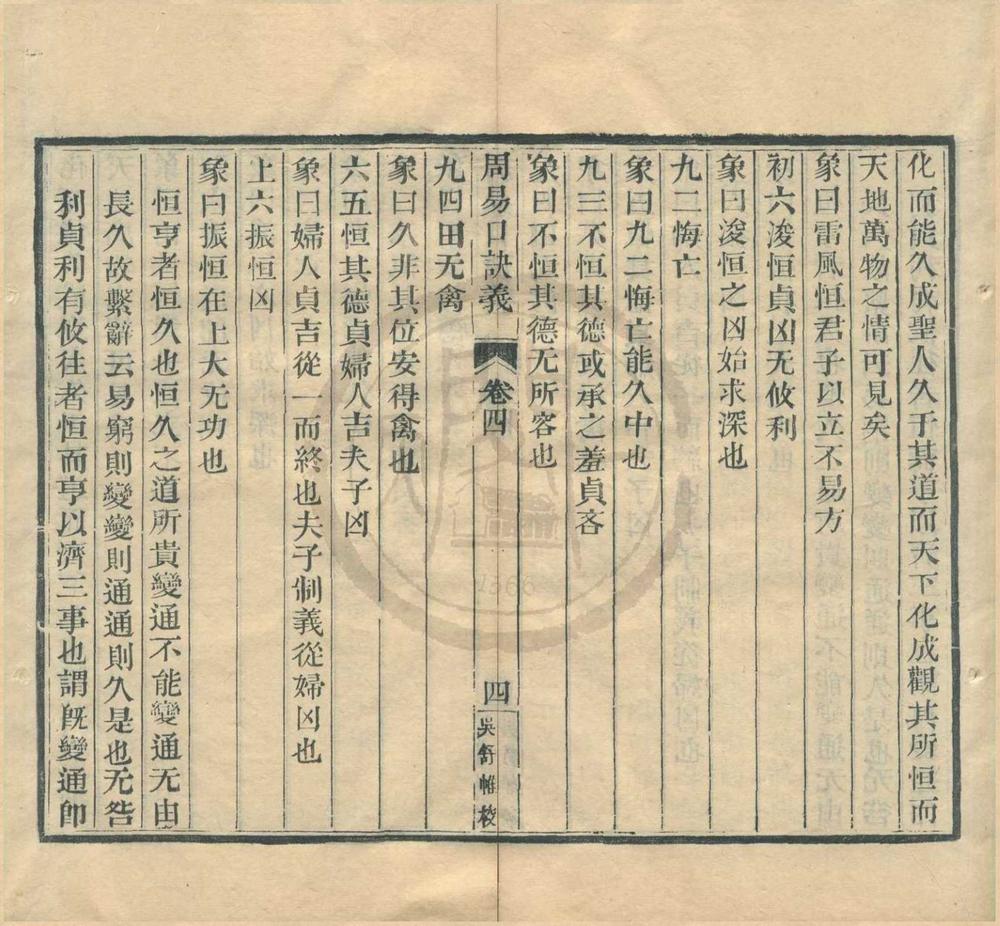 化而能久成聖人久于其道而天下化成觀其所恒而
天地萬物之情可見矣
象曰雷風恒君子以立不易方
初六浚恒貞凶无攸利
象曰浚恒之凶始求深也
九二悔亡
象曰九二悔亡能久中也
九三不恒其德或承之羞貞吝
象曰不恒其德无所容也
周易口訣義 卷四 四 吳舒帷校
九四田无禽
象曰久非其位安得禽也
六五恒其德貞婦人吉夫子凶
象曰婦人貞吉從一而終也夫子制義從婦凶也
上六振恒凶
象曰振恒在上大无功也
恒亨者恒久也恒久之道所貴變通不能變通无由
長久故繫辭云易窮則變變則通通則久是也无咎
利貞利有攸往者恒而亨以濟三事也謂旣變通卽